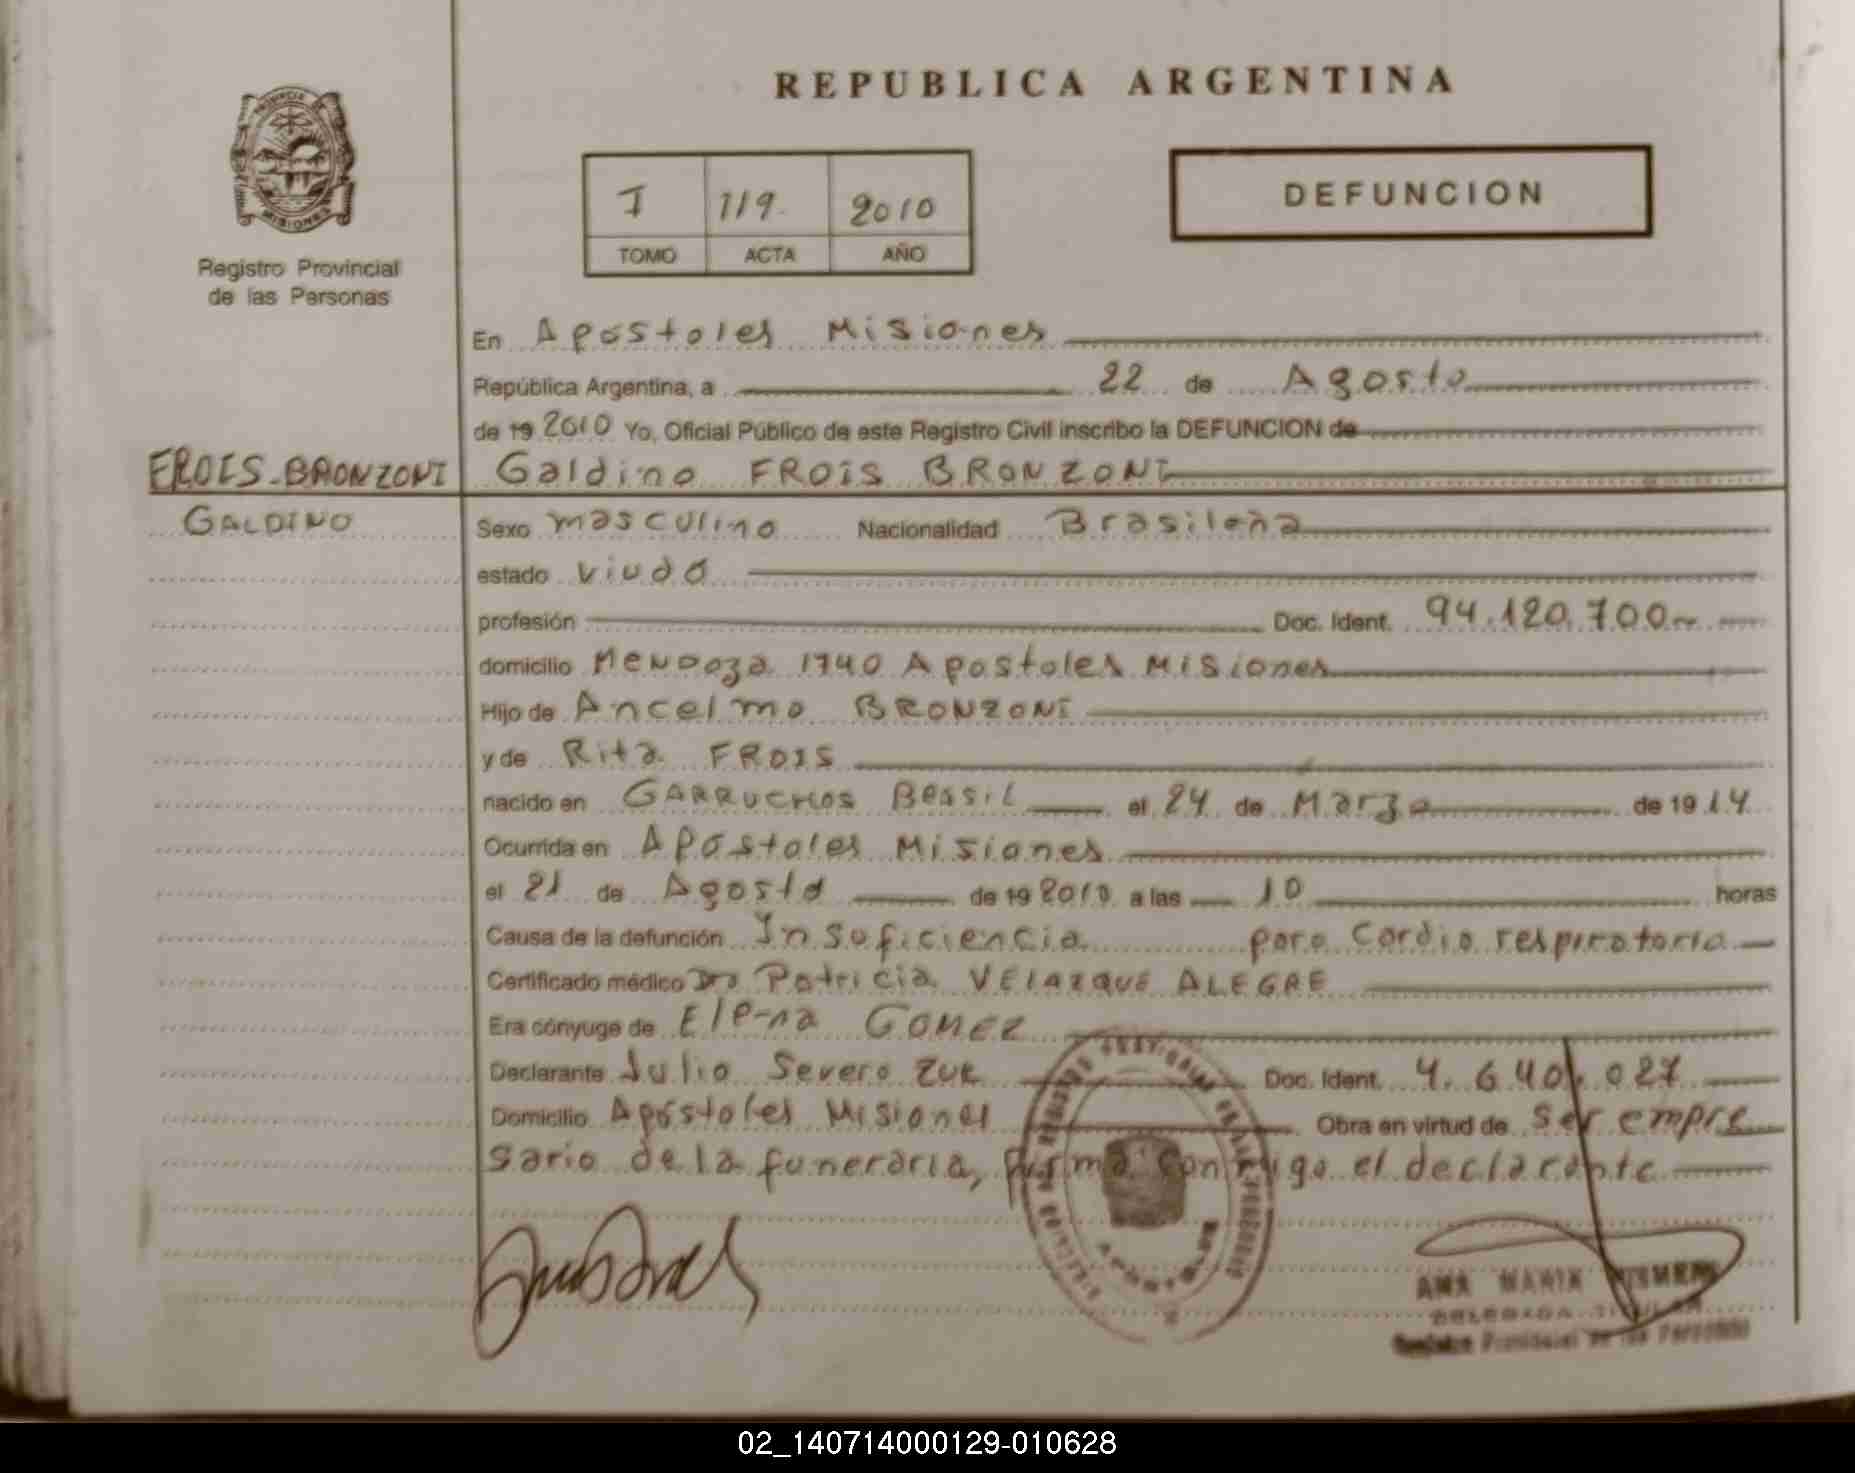 REPUBLICA ARGENTINA
PROVINCIA DE
MISIONES
Registro Provincial
de las Personas
I 119 2010
TOMO ACTA AÑO
DEFUNCION
En Apóstoles Misiones
República Argentina, a 22 de Agosto
de 19 2010 Yo, Oficial Público de este Registro Civil inscribo la DEFUNCION de
FROIS-BRONZONI Galdino FROIS BRONZONI
GALDINO Sexo masculino Nacionalidad Brasileña
estado viudo
profesión Doc. Ident. 94.120.700
domicilio Mendoza 1740 Apostoles Misiones
Hijo de Ancelmo BRONZONI
y de Rita FROIS
nacido en GARRUCHOS Brasil el 24 de Marzo de 1914
Ocurrida en Apóstoles Misiones
el 21 de Agosto de 19 2010 a las 10 horas
Causa de la defunción Insuficiencia paro cardio respiratorio
Certificado médico Dra Patricia VELAZQUE ALEGRE
Era cónyuge de Elena GOMEZ
Declarante Julio Severo ZUK Doc. Ident. 4.640.027
Domicilio Apóstoles Misiones Obra en virtud de ser empre
sario de la funeraria, firma conmigo el declarante
ANA MARIA
DELEGADA TITULAR
Registro Provincial de las Personas
02_140714000129-010628